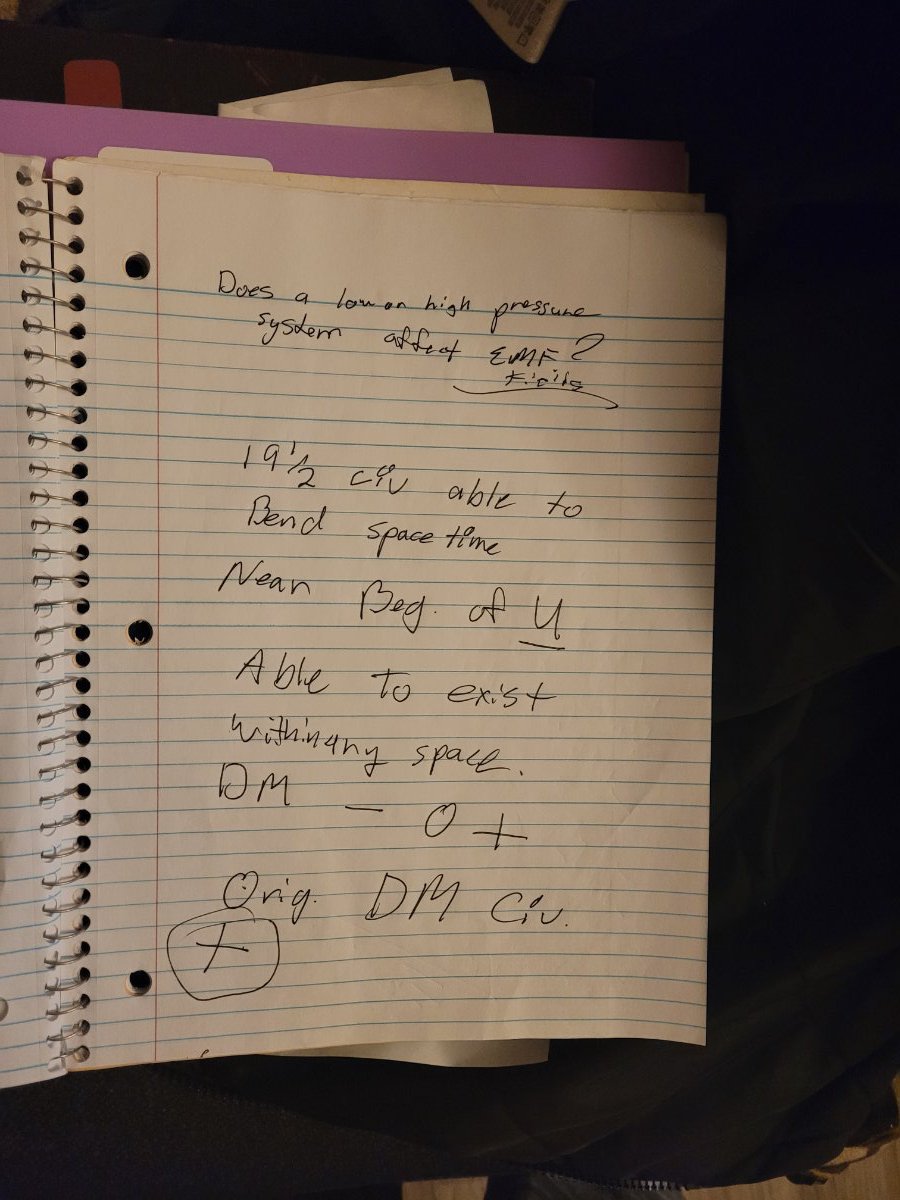 Does a low or high pressure
system affect EMF?
Fields
19 1/2 civ able to
Bend spacetime
Near Beg. of U
Able to exist
within any space.
DM - 0 +
Orig. DM Civ.
+